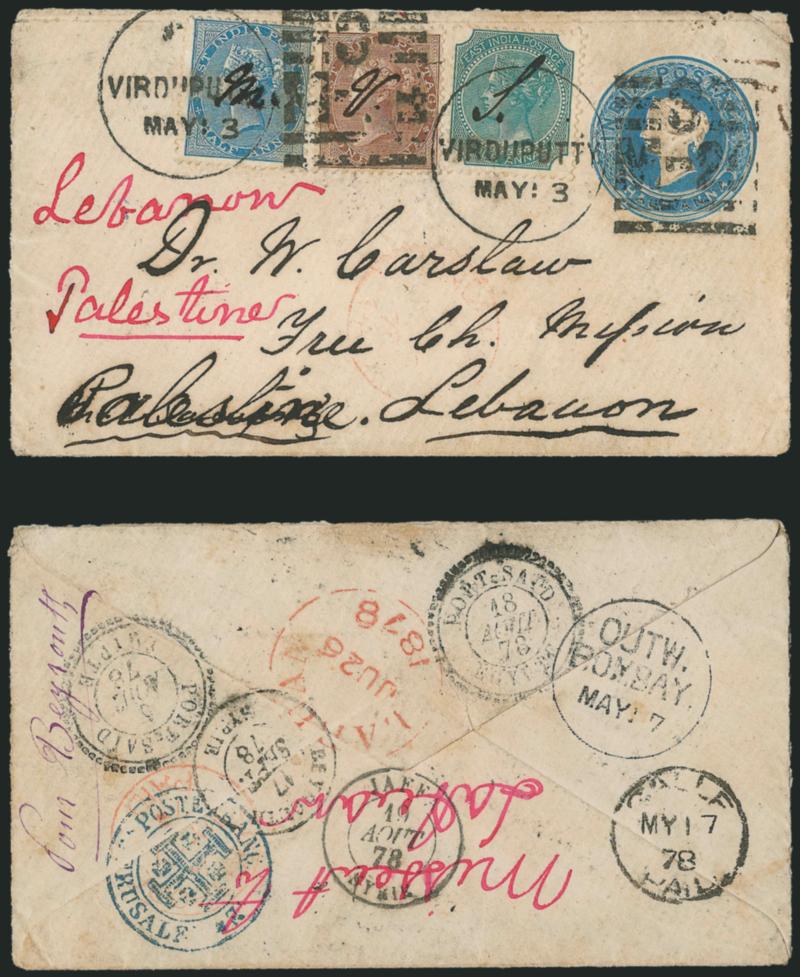 EAST INDIA POSTAGE
HALF ANNA
M.
V.
S.
VIRDUPUTTY
MAY: 3
VIRDUPUTTY
MAY: 3
Lebanon
Dr. W. Carslaw
Palestine
Free Ch. Mission
Palestine. Lebanon
Pour Beyrouth
PORT-SAID
EGYPTE
78
1878
JU 26
PORT-SAID
18
AOUT
78
OUTW.
BOMBAY.
MAY: 7
BEYROUTH
SYRIE
17
78
JAFFA
19
AOUT
78
SYRIE
Missent to
GALLE
MY 17
78
PAID
POSTE FRANC.